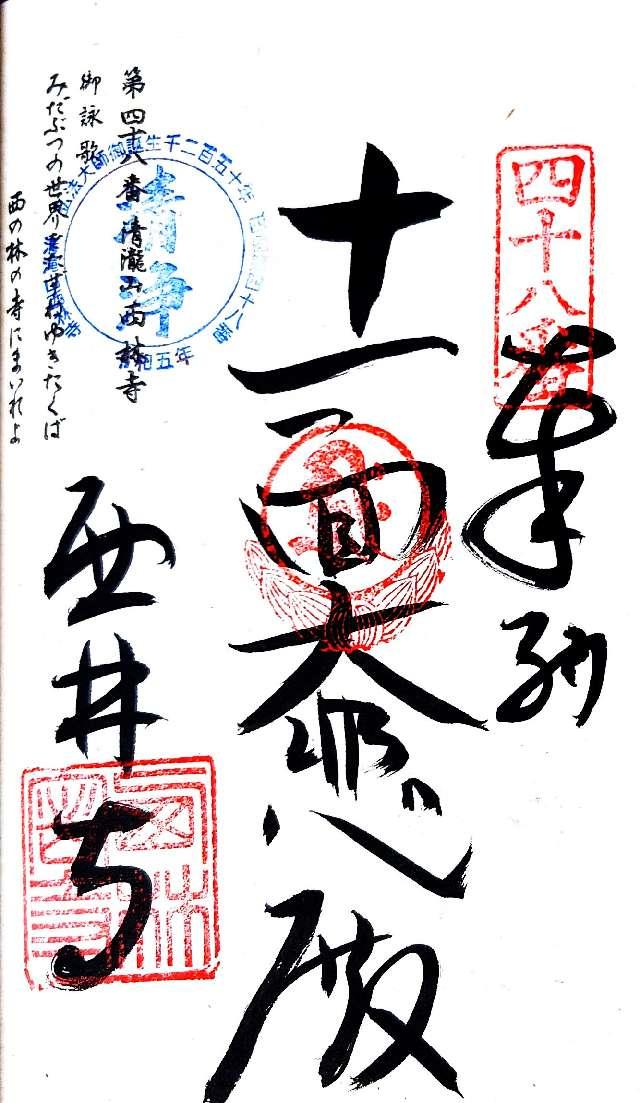 四十八番
奉納
十一面大悲殿
第四十八番清滝山西林寺
御詠歌
みだぶつの世界
ゆきたくば
西の林の寺にまいれよ
大師御誕生千二百五十年
十八番
清浄
五年
西林寺
西林
寺